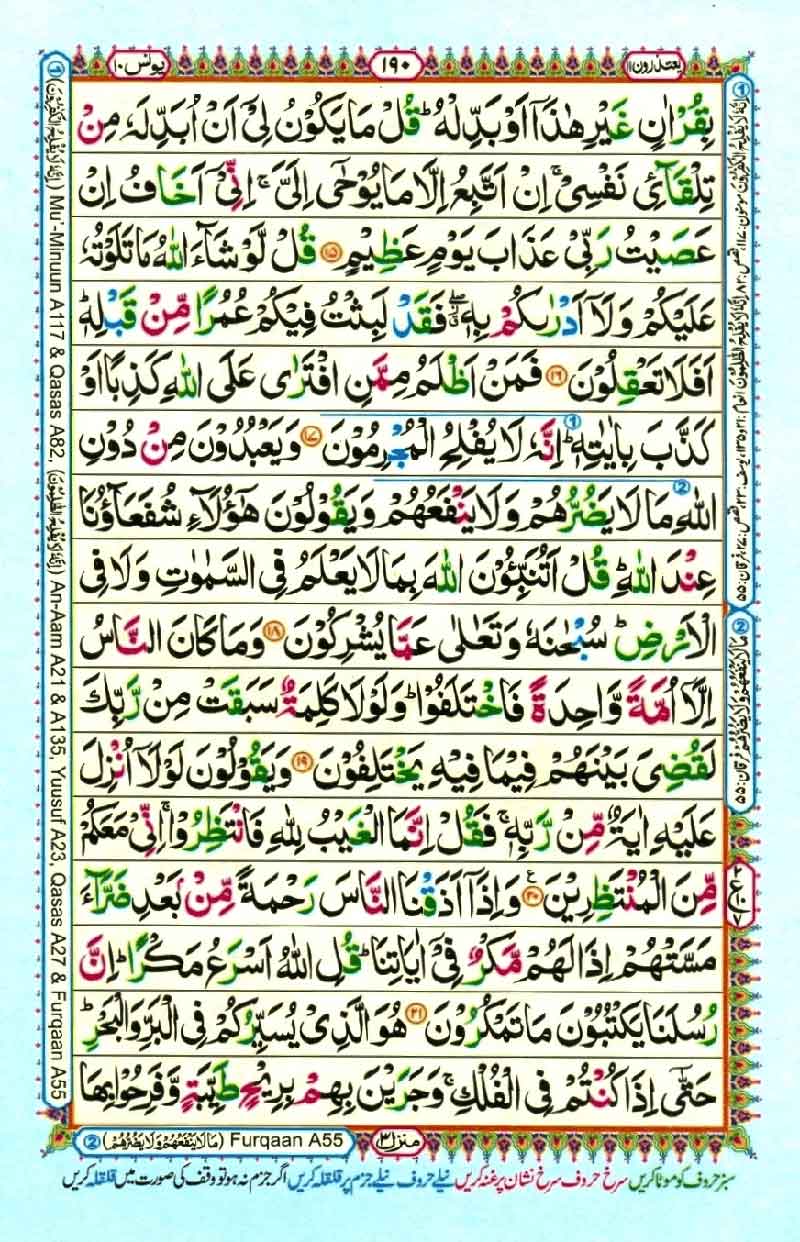 يعتذرون ١١
١٩٠
يونس ١٠
بِقُرْاٰنٍ غَيْرِ هٰذَاۤ اَوْ بَدِّلْهُ ؕ قُلْ مَا يَكُوْنُ لِىْۤ اَنْ اُبَدِّلَهٗ مِنْ
تِلْقَآئِ نَفْسِىْ ۚ اِنْ اَتَّبِعُ اِلَّا مَا يُوْحٰۤى اِلَىَّ ۚ اِنِّىْۤ اَخَافُ اِنْ
عَصَيْتُ رَبِّىْ عَذَابَ يَوْمٍ عَظِيْمٍ ۝١٥ قُلْ لَّوْ شَآءَ اللّٰهُ مَا تَلَوْتُهٗ
عَلَيْكُمْ وَلَاۤ اَدْرٰىكُمْ بِهٖ ۖ فَقَدْ لَبِثْتُ فِيْكُمْ عُمُرًا مِّنْ قَبْلِهٖ ؕ
اَفَلَا تَعْقِلُوْنَ ۝١٦ فَمَنْ اَظْلَمُ مِمَّنِ افْتَرٰى عَلَى اللّٰهِ كَذِبًا اَوْ
كَذَّبَ بِاٰيٰتِهٖ ؕ ① اِنَّهٗ لَا يُفْلِحُ الْمُجْرِمُوْنَ ۝١٧ وَيَعْبُدُوْنَ مِنْ دُوْنِ
اللّٰهِ ② مَا لَا يَضُرُّهُمْ وَلَا يَنْفَعُهُمْ وَيَقُوْلُوْنَ هٰٓؤُلَآءِ شُفَعَآؤُنَا
عِنْدَ اللّٰهِ ؕ قُلْ اَتُنَبِّئُوْنَ اللّٰهَ بِمَا لَا يَعْلَمُ فِى السَّمٰوٰتِ وَلَا فِى
الْاَرْضِ ؕ سُبْحٰنَهٗ وَتَعٰلٰى عَمَّا يُشْرِكُوْنَ ۝١٨ وَمَا كَانَ النَّاسُ
اِلَّاۤ اُمَّةً وَّاحِدَةً فَاخْتَلَفُوْا ؕ وَلَوْلَا كَلِمَةٌ سَبَقَتْ مِنْ رَّبِّكَ
لَقُضِىَ بَيْنَهُمْ فِيْمَا فِيْهِ يَخْتَلِفُوْنَ ۝١٩ وَيَقُوْلُوْنَ لَوْلَاۤ اُنْزِلَ
عَلَيْهِ اٰيَةٌ مِّنْ رَّبِّهٖ ۚ فَقُلْ اِنَّمَا الْغَيْبُ لِلّٰهِ فَانْتَظِرُوْا ۚ اِنِّىْ مَعَكُمْ
مِّنَ الْمُنْتَظِرِيْنَ ۝٢٠ وَاِذَاۤ اَذَقْنَا النَّاسَ رَحْمَةً مِّنْۢ بَعْدِ ضَرَّآءَ
مَسَّتْهُمْ اِذَا لَهُمْ مَّكْرٌ فِىْۤ اٰيَاتِنَا ؕ قُلِ اللّٰهُ اَسْرَعُ مَكْرًا ؕ اِنَّ
رُسُلَنَا يَكْتُبُوْنَ مَا تَمْكُرُوْنَ ۝٢١ هُوَ الَّذِىْ يُسَيِّرُكُمْ فِى الْبَرِّ وَالْبَحْرِ ؕ
حَتّٰىۤ اِذَا كُنْتُمْ فِى الْفُلْكِ ۚ وَجَرَيْنَ بِهِمْ بِرِيْحٍ طَيِّبَةٍ وَّفَرِحُوْا بِهَا
① (اِنَّهٗ لَا يُفْلِحُ الْكٰفِرُوْنَ) Mu'-Minuun A117 & Qasas A82, (اِنَّهٗ لَا يُفْلِحُ الظّٰلِمُوْنَ) An-Aam A21 & A135, Yuusuf A23, Qasas A27 & Furqaan A55
② مَا لَا يَنْفَعُهُمْ وَلَا يَضُرُّهُمْ فرقان: ۵۵
② (مَا لَا يَنْفَعُهُمْ وَلَا يَضُرُّهُمْ) Furqaan A55
منزل ٣
سبز حروف کو موٹا کریں سرخ حروف سرخ نشان پر غنہ کریں نیلے حروف نیلے جزم پر قلقلہ کریں اگر جزم نہ ہو تو وقف کی صورت میں قلقلہ کریں